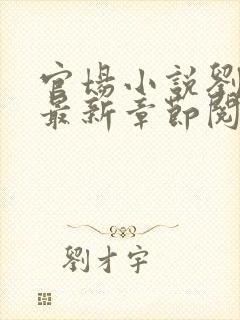 官場小説劉
最新章節閱
劉才宇